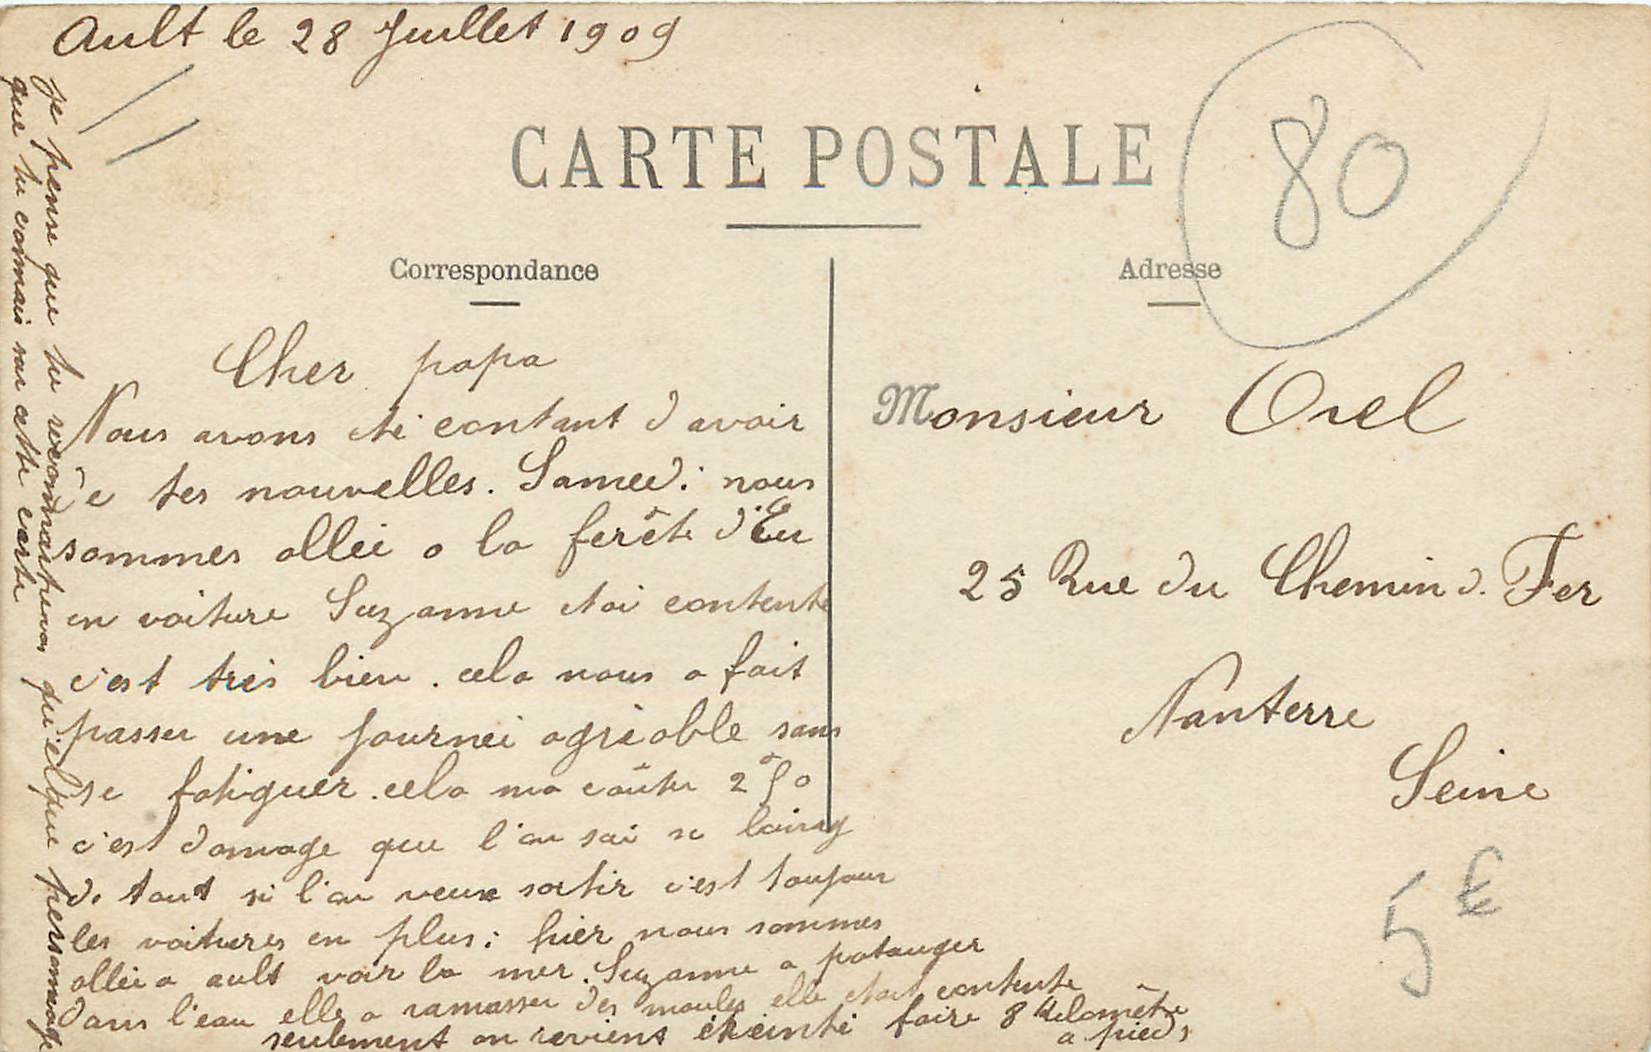 Ault le 28 Juillet 1909
80
CARTE POSTALE
Correspondance
Adresse
Cher papa
Nous avons été contant d'avoir
de tes nouvelles. Samedi nous
sommes allée a la ferêt d'Eu
en voiture Suzanne étai contente
c'est très bien. cela nous a fait
passer une journeé agréable sans
se fatiguer. cela ma coûter 2f50
c'est domage que l'on soi si loing
de tout si l'on veux sortir c'est toujour
les voitures en plus; hier nous sommes
alleé a ault voir la mer. Suzanne a patauger
dans l'eau elle a ramasser des moules elle était contente
seulement on revient éreinté faire 8 kilomêtre
a pieds
je pense que tu reconnaitras quielque personnage
que tu connais sur cette carte
Monsieur Orel
25 Rue du Chemin d. Fer
Nanterre
Seine
5€